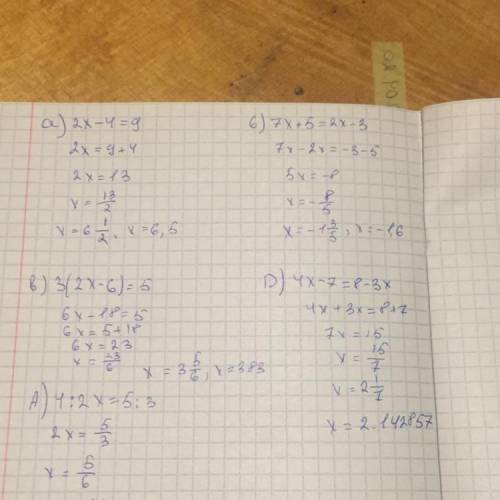 а) 2x-4=9
2x=9+4
2x=13
x=13/2
x=6 1/2, x=6,5
б) 7x+5=2x-3
7x-2x=-3-5
5x=-8
x=-8/5
x=-1 3/5, x=-1,6
в) 3(2x-6)=5
6x-18=5
6x=5+18
6x=23
x=23/6
x=3 5/6, x=383
Д) 4:2x=5:3
2x=5/3
x=5/6
D) 4x-7=8-3x
4x+3x=8+7
7x=15
x=15/7
x=2 1/7
x=2.142857